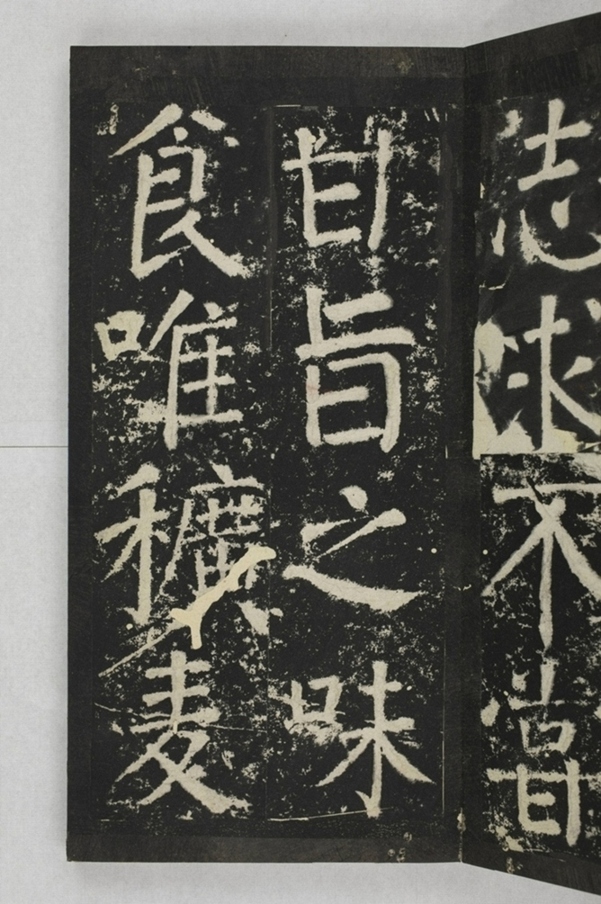 志求不甞
甘旨之味
食唯穬麦